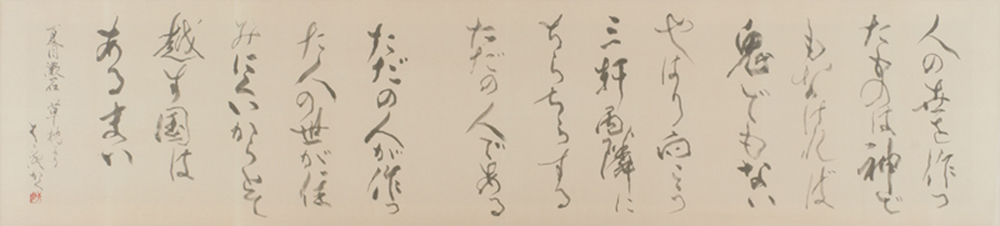 人の世を作っ
たものは神で
もなければ
鬼でもない
やはり向こう
三軒両隣に
ちらちらする
ただの人である
ただの人が作っ
た人の世が住
みにくいからとて
越す国は
あるまい
夏目漱石 草枕より
かく